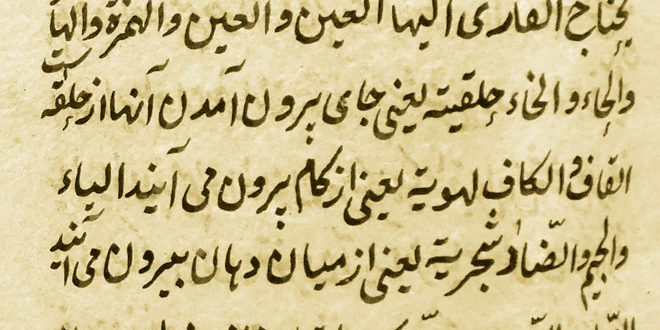 یحتاج القاری الیها العین و الغین والهمزة والها
والحاء و الخاء حلقیته یعنی جای بیرون آمدن آنها از حلقه است
القاف و الکاف لهویة یعنی از کام بیرون می آیند الیاء
والجیم والضاد شجریة یعنی از میان دهان بیرون می آیند